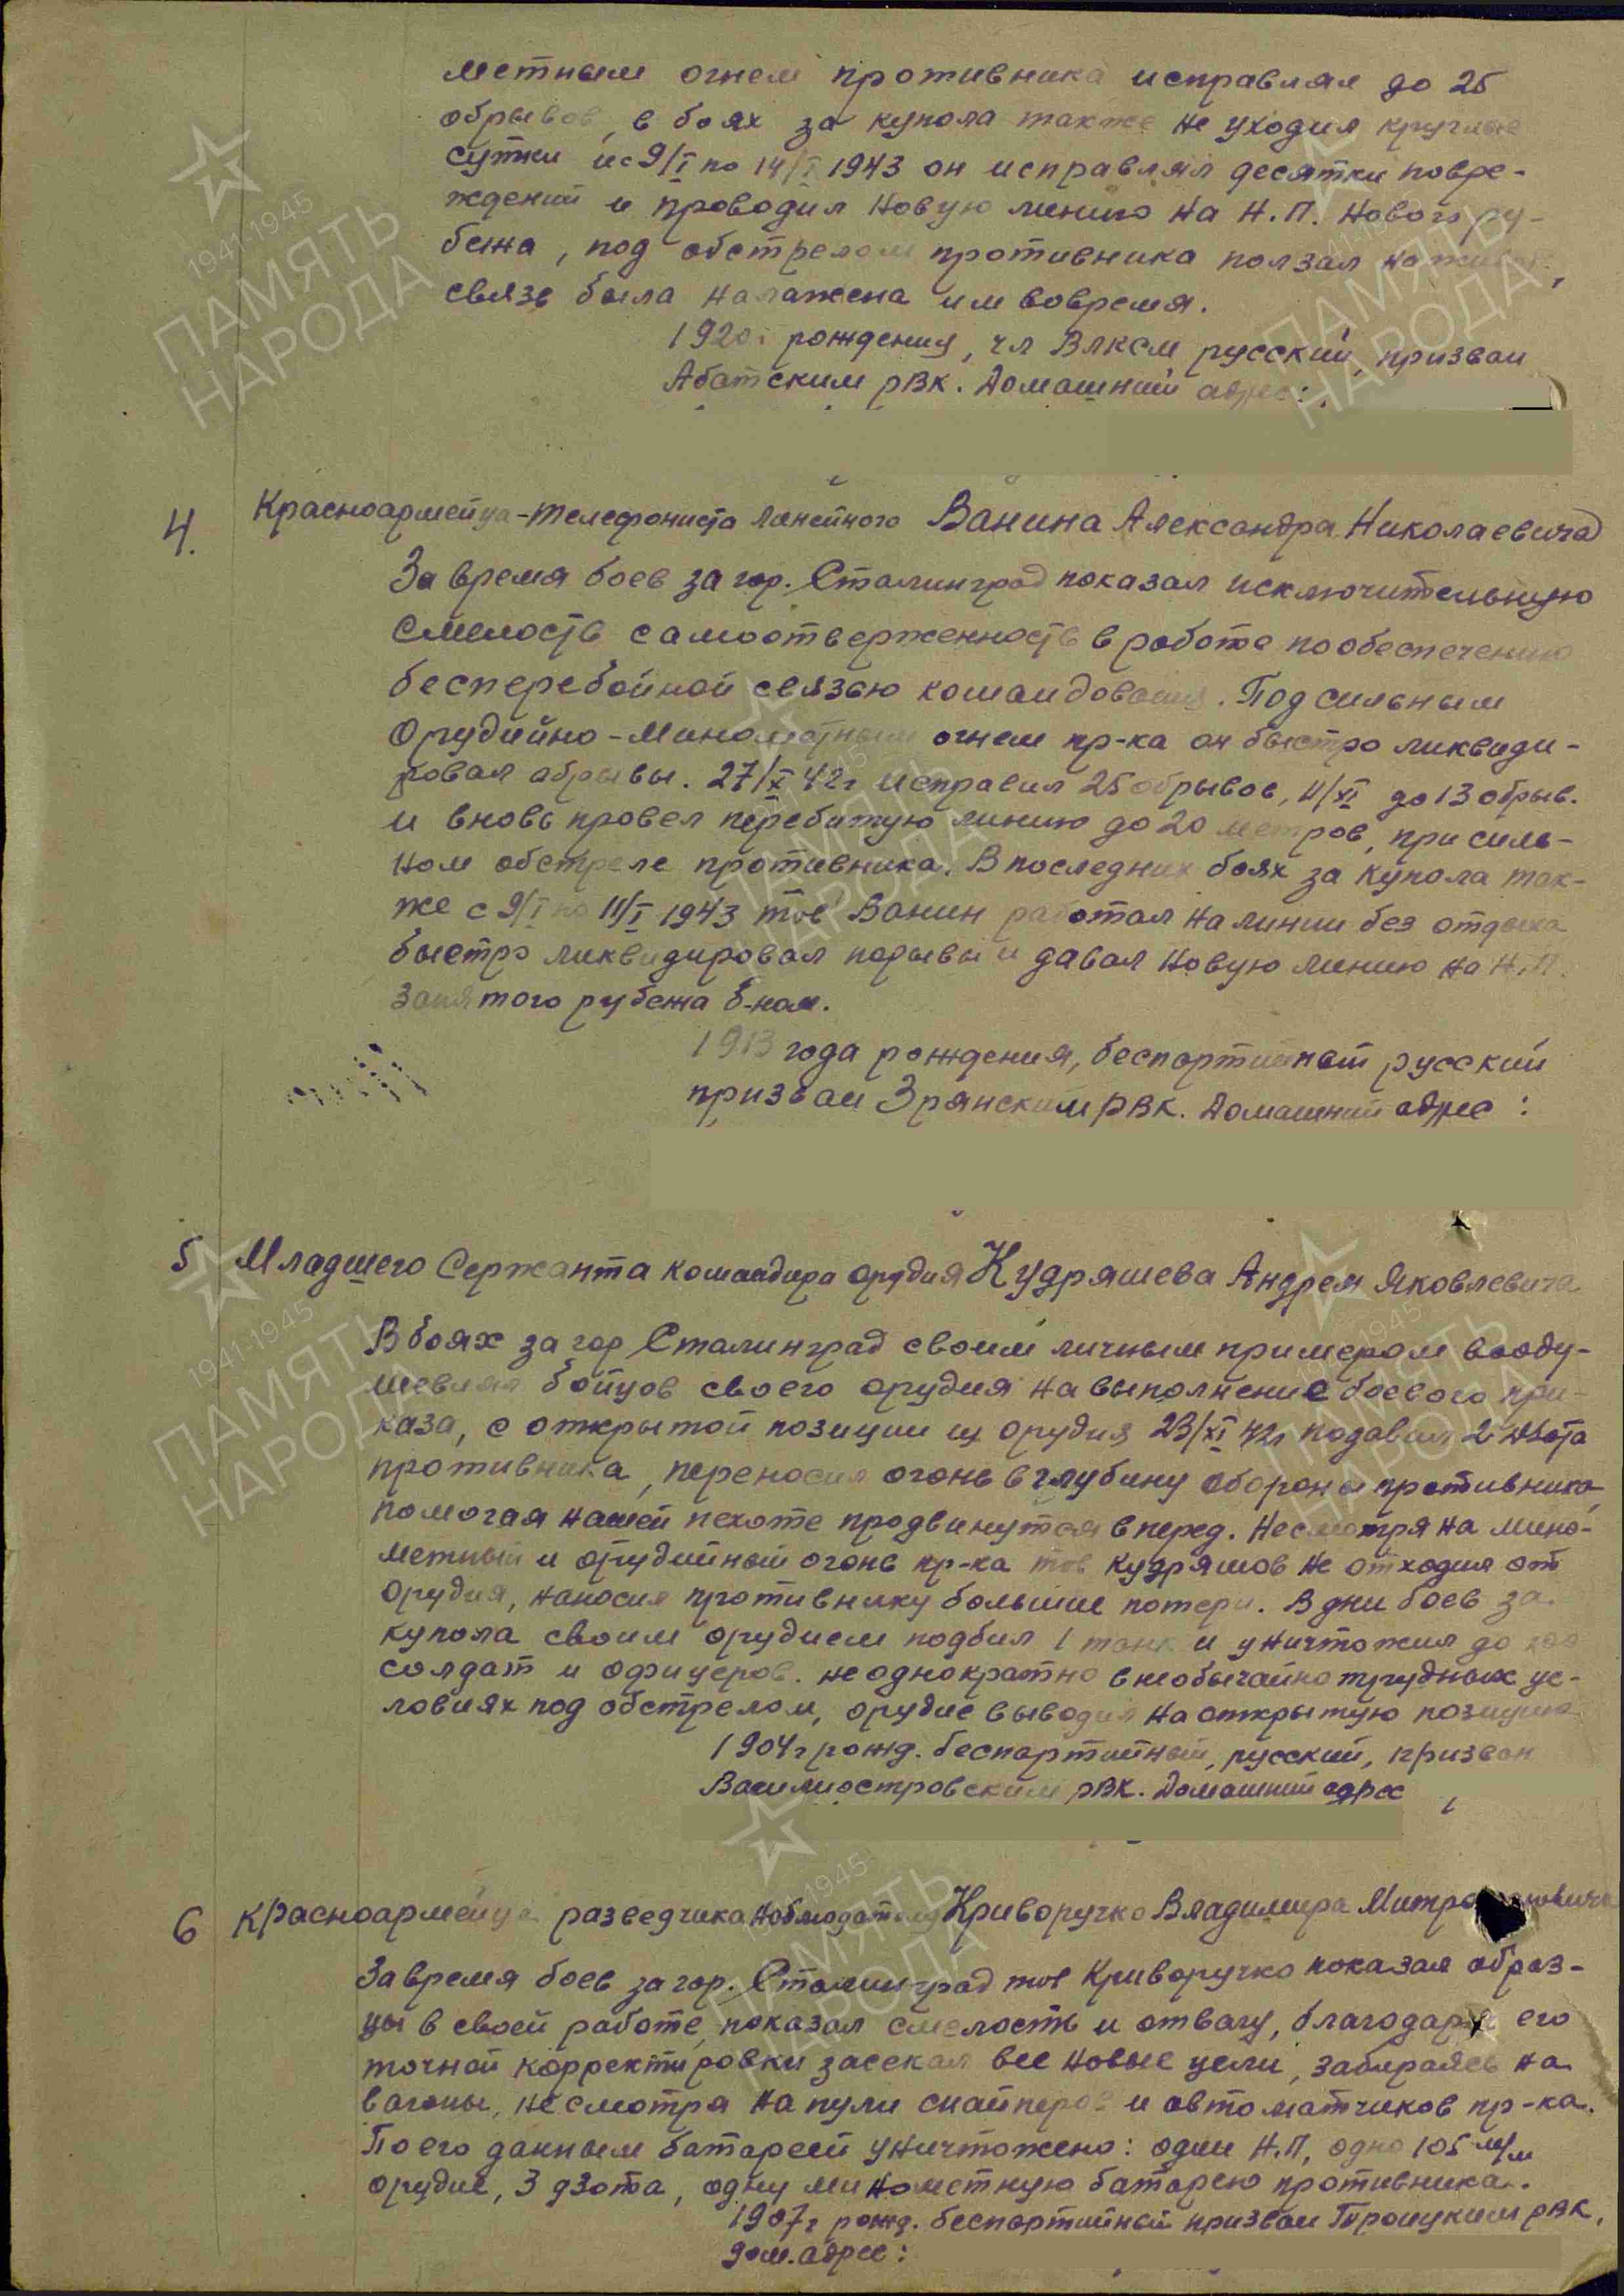 метным огнем противника исправлял до 25
обрывов, в боях за купола также не уходил круглые
сутки и с 9/I по 14/I 1943 он исправлял десятки повре-
ждений и проводил новую линию на Н.П. нового ру-
бежа, под обстрелом противника ползал на животе,
связь была налажена им вовремя.
1920г рождения, чл ВЛКСМ русский, призван
Абатским РВК. Домашний адрес:
4. Красноармейца-телефониста линейного Ванина Александра Николаевича
За время боев за гор. Сталинград показал исключительную
смелость самоотверженность в работе по обеспечению
бесперебойной связью командования. Под сильным
орудийно-минометным огнем пр-ка он быстро ликвиди-
ровал обрывы. 27/X 42г исправил 25 обрывов, 11/XI до 13 обрыв.
и вновь провел перебитую линию до 20 метров, при силь-
ном обстреле противника. В последних боях за купола так-
же с 9/I по 11/I 1943 тов Ванин работал на линии без отдыха
быстро ликвидировал порывы и давал новую линию на Н.П.
занятого рубежа б-ном.
1913 года рождения, беспартийный русский
призван Зрянским РВК. Домашний адрес:
5 Младшего Сержанта командира орудия Кудряшева Андрея Яковлевича
В боях за гор Сталинград своим личным примером вооду-
шевлял бойцов своего орудия на выполнение боевого при-
каза, с открытой позиции из орудия 23/XI 42г подавил 2 дзота
противника, переносил огонь в глубину обороны противника,
помогая нашей пехоте продвинутся вперед. Несмотря на мино-
метный и орудийный огонь пр-ка тов Кудряшов не отходил от
орудия, наносил противнику большие потери. В дни боев за
купола своим орудием подбил 1 танк и уничтожил до 100
солдат и офицеров. неоднократно в необычайно трудных ус-
ловиях под обстрелом, орудие выводил на открытую позицию
1904г рожд. беспартийный, русский, призван
Василиостровским РВК. Домашний адрес
6 Красноармейца разведчика наблюдателя Криворучко Владимира
За время боев за гор. Сталинград тов Криворучко показал образ-
цы в своей работе, показал смелость и отвагу, благодаря его
точной корректировки засекал все новые цели, забираясь на
вагоны, несмотря на пули снайперов и автоматчиков пр-ка.
По его данным батареей уничтожено: один Н.П, одно 105 м/м
орудие, 3 дзота, одну минометную батарею противника.
1907г рожд. беспартийный призван Троицким РВК,
дом. адрес:
1941-1945
ПАМЯТЬ
НАРОДА